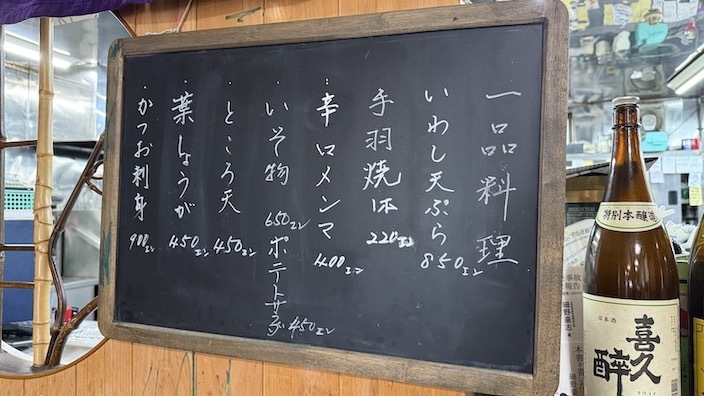 一品料理
いわし天ぷら 850エン
手羽焼 1本 220エン
・辛口メンマ 400エン
・いそ物 650エン
ポテトサラダ 450エン
・ところ天 450エン
・葉しょうが 450エン
・かつお刺身 900エン
特別本醸造
日本酒
喜久酔